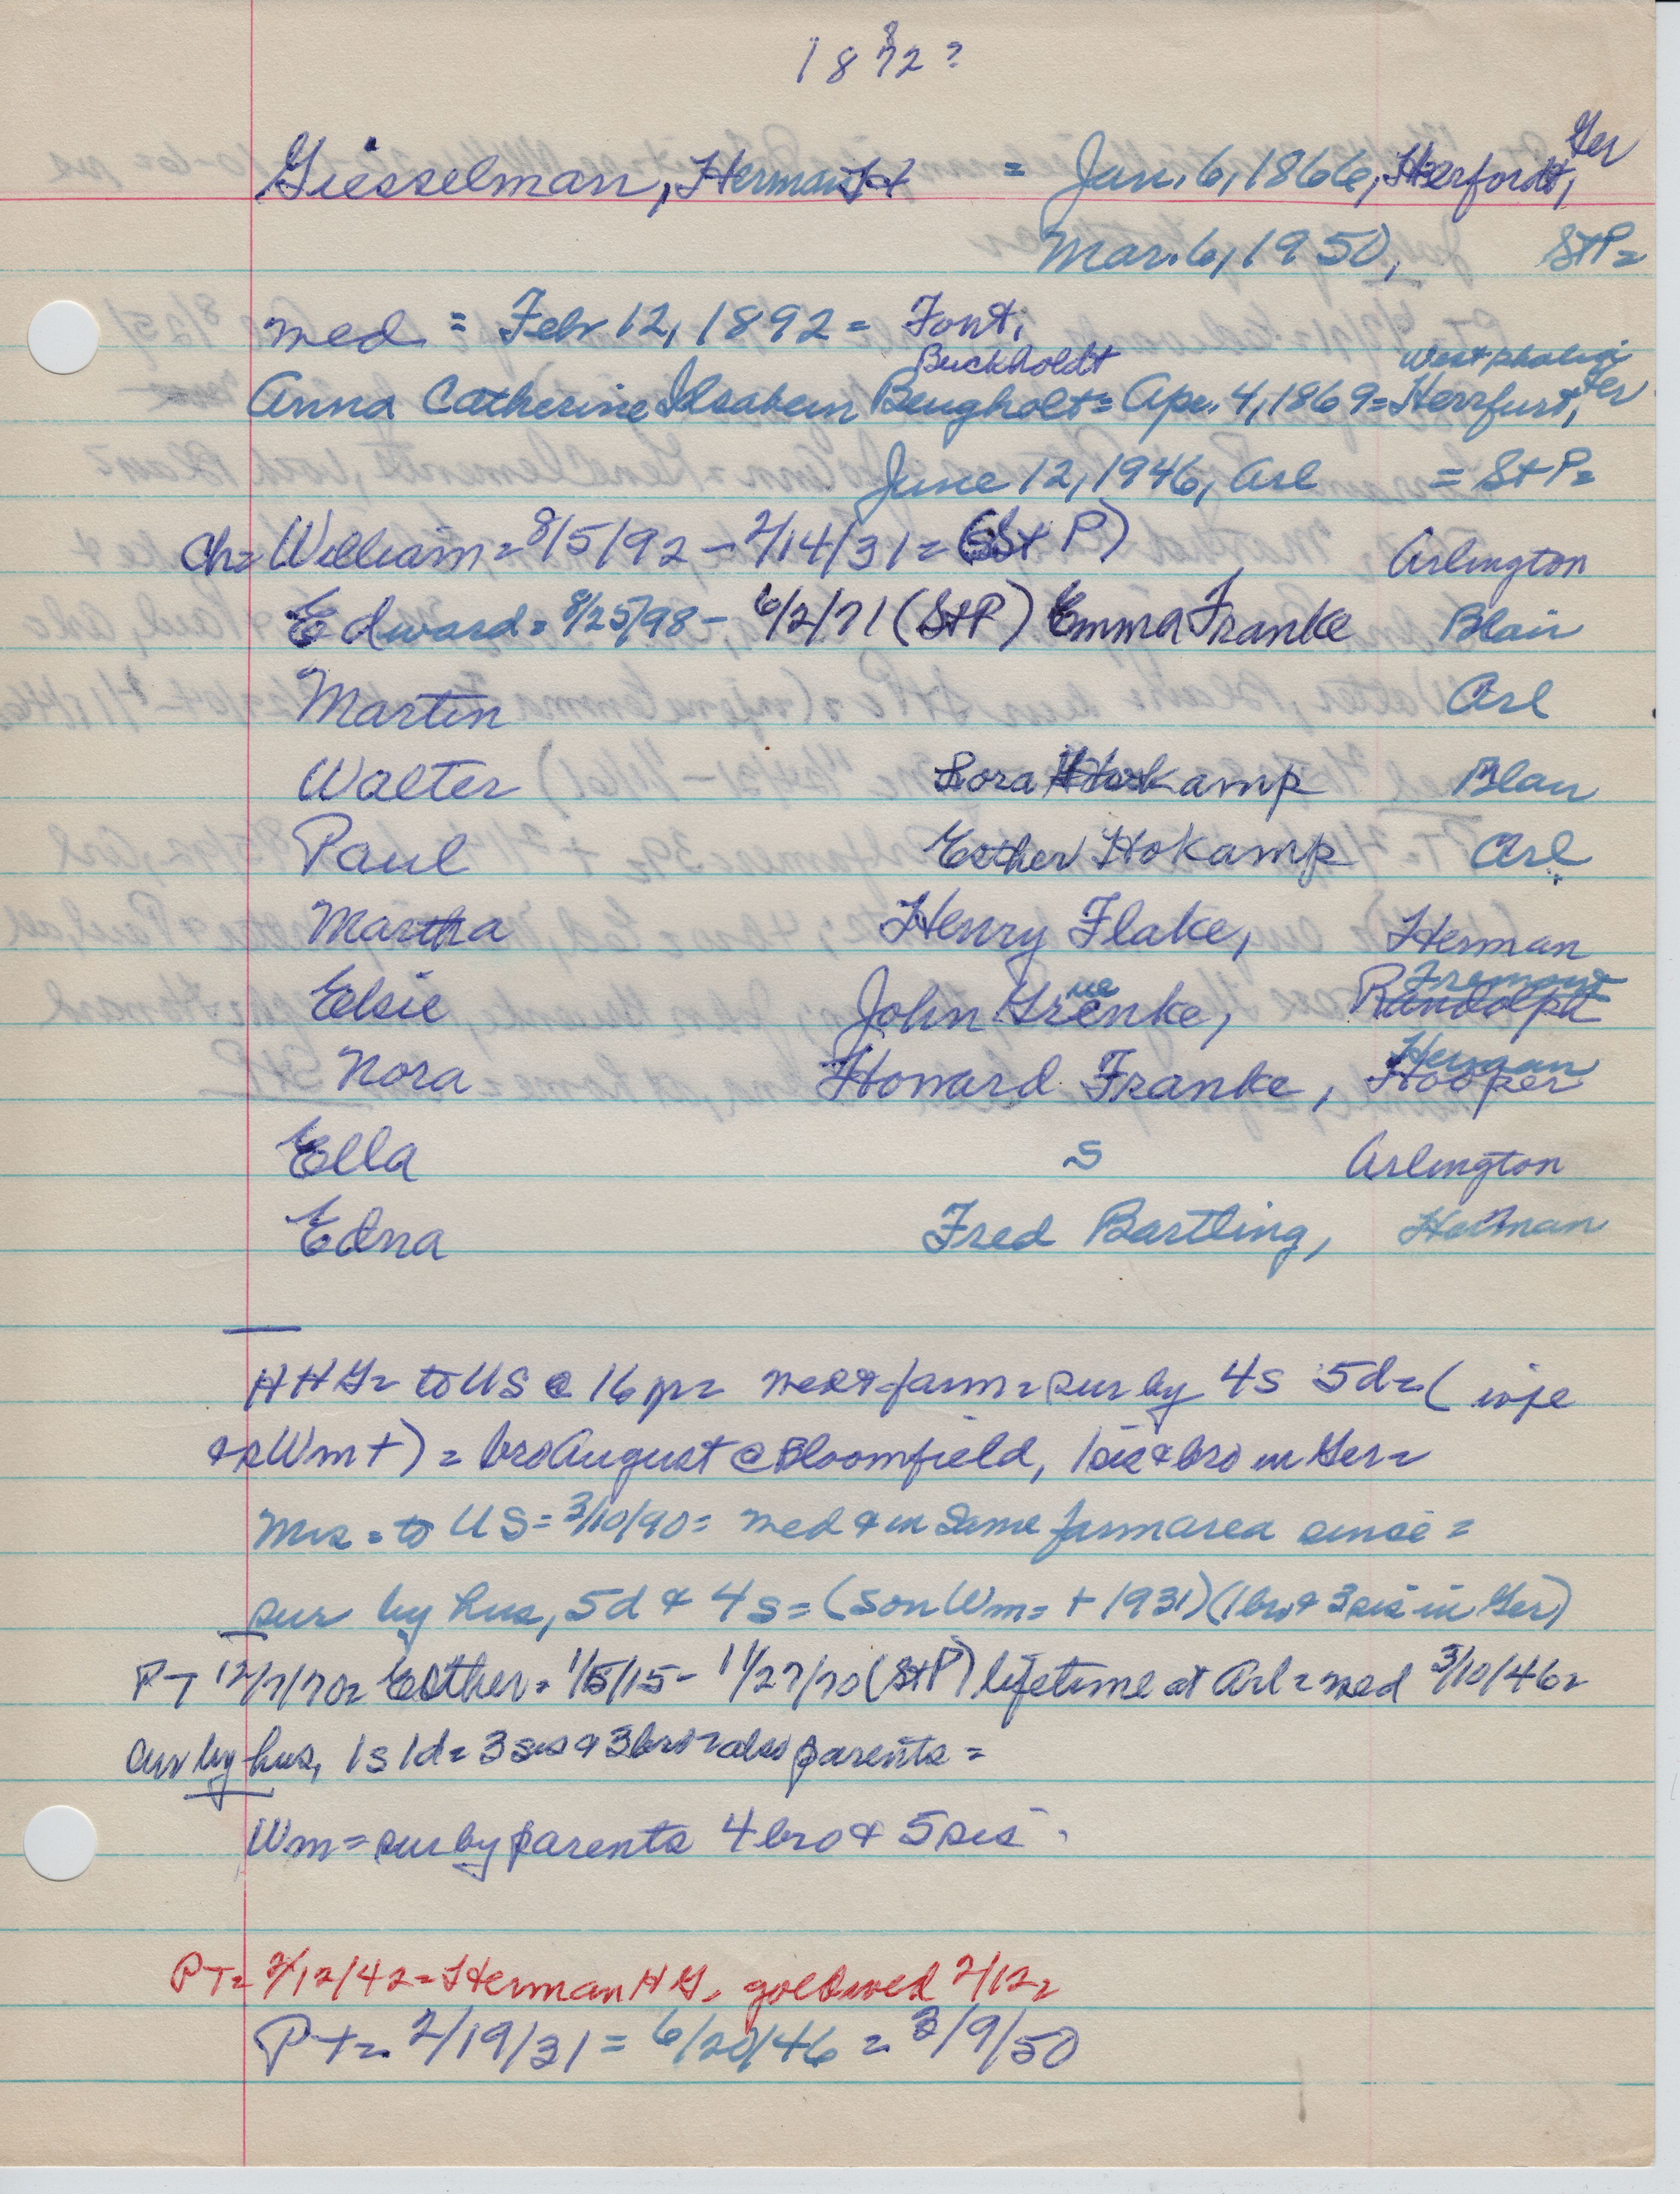 1872?
8
Giesselman, Herman H = Jan. 6, 1866, Herfordt, Ger
Mar. 6, 1950, St P =
med = Febr 12, 1892 = Font,
Buckholdt Westphalia
Anna Catherine Ilsabein Beugholt = Apr. 4, 1869 = Herrfurt, Ger
June 12, 1946, Arl = St P =
Ch = William = 8/5/92 - 2/14/31 = (St P) Arlington
Edward = 8/25/98 - 6/2/71 (St P) Emma Franke Blair
Martin Arl
Walter Lora Hokamp Blair
Paul Esther Hokamp Arl
Martha Henry Flake, Herman
Fremont
Elsie John Grenke, Randolph
ue
Herman
Nora Howard Franke, Hooper
Ella S Arlington
Edna Fred Bartling, Herman
H H G = to US @ 16 yr = med & farm = sur by 4s 5d = (wife
& s Wm +) = bro August @ Bloomfield, 1 sis & bro in Ger =
Mrs = to US = 3/10/90 = med & in same farm area since =
sur by hus, 5d & 4s = (son Wm = + 1931) (1 bro & 3 sis in Ger)
PT 12/7/70 = Esther = 1/5/15 - 11/27/70 (St P) lifetime at Arl = med 3/10/46 =
sur by hus, 1s 1d = 3 sis & 3 bro = also parents =
Wm = sur by parents 4 bro & 5 sis.
PT = 2/12/42 = Herman H G = gold wed 2/12 =
PT = 2/19/31 = 6/20/46 = 3/9/50